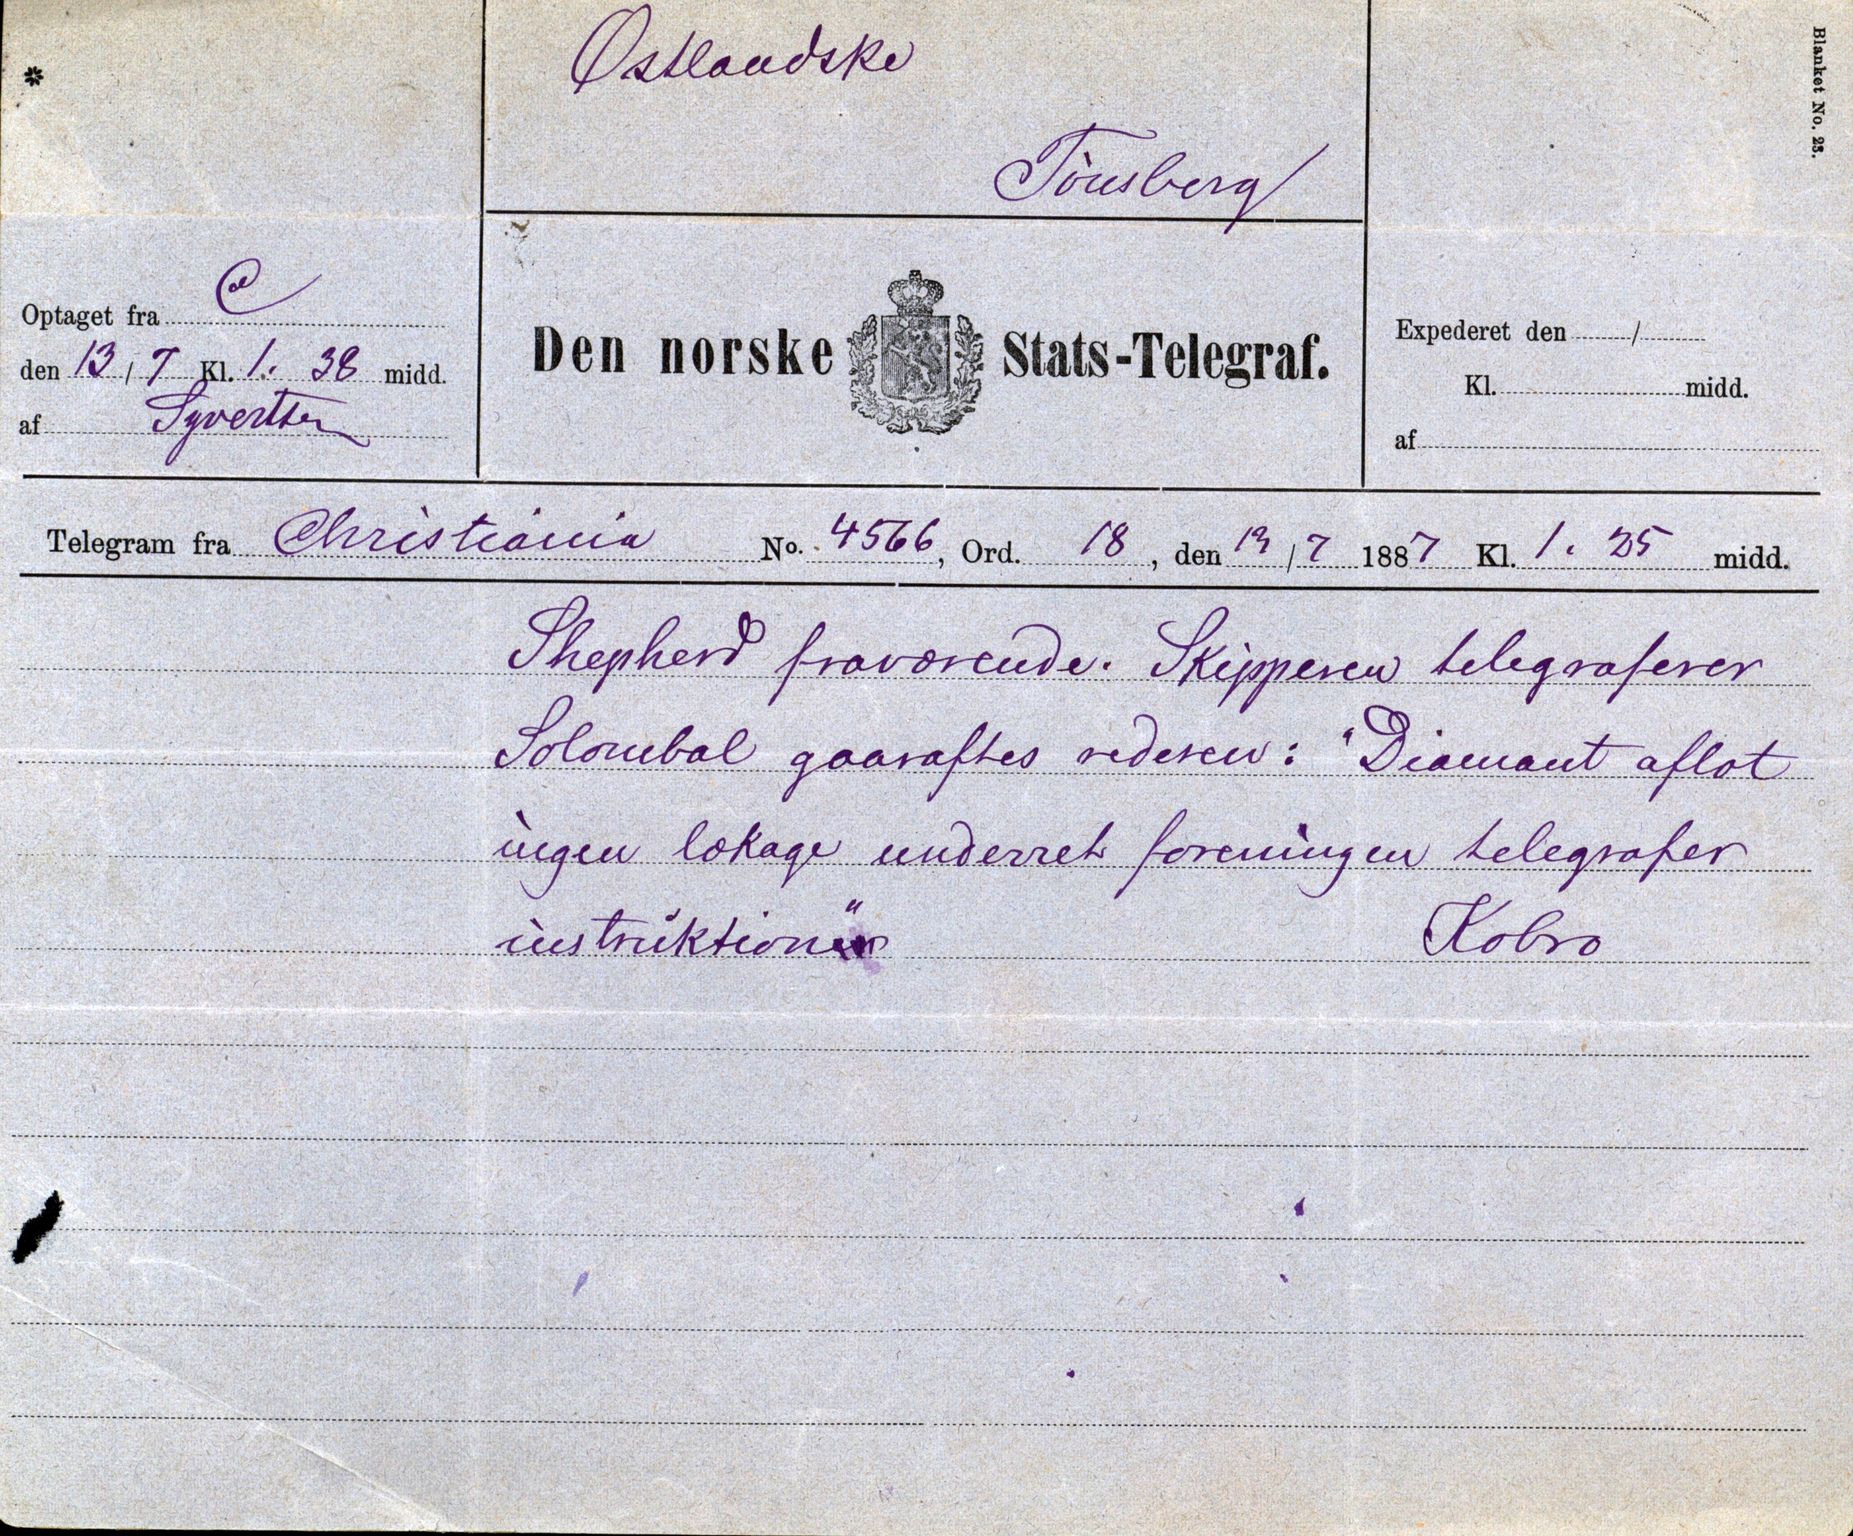 Blanket No. 23.
*
Østlandske
Tönsberg
Optaget fra C
den 13/7 Kl. 1. 38 midd.
af Syvertsen
Den norske Stats-Telegraf.
Expederet den /
Kl. midd.
af
Telegram fra Christiania No. 4566, Ord. 18, den 13/7 1887 Kl. 1. 25 midd.
Shepherd fraværende. Skipperen telegraferer
Solombal gaaraftes rederen: "Diamant aflot
ingen lækage underret foreningen telegrafer
instruktioner"
Kobro